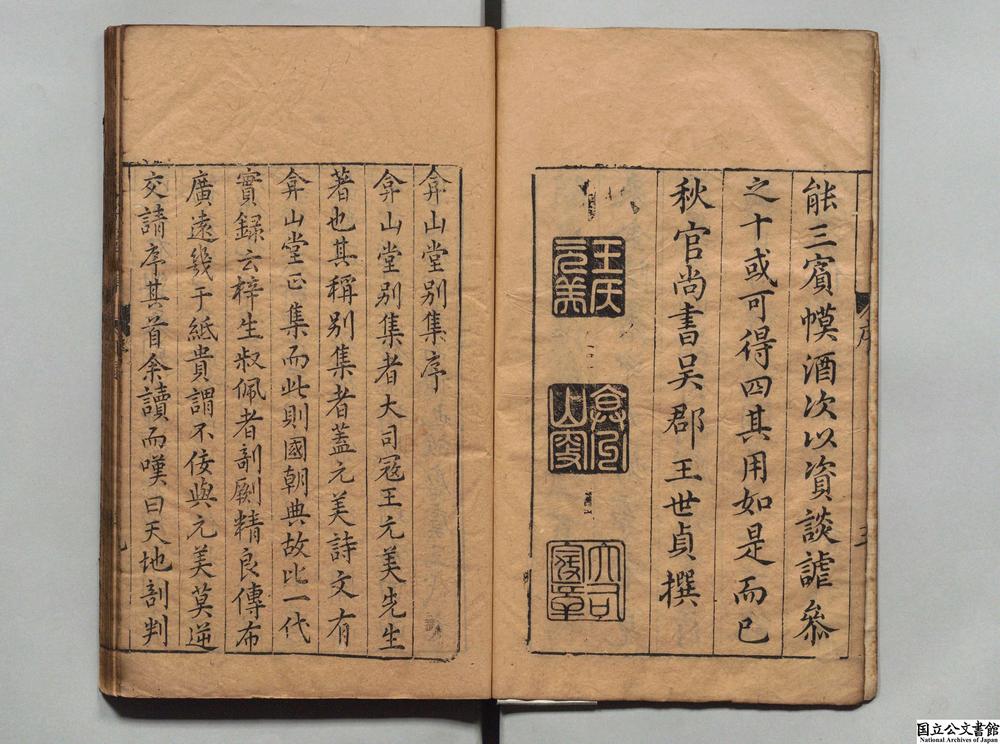 能三賓幙酒次以資談謔參
之十或可得四其用如是而已
秋官尚書吳郡王世貞撰
王氏元美
大司寇章
序
弇山堂別集序
弇山堂別集者大司寇王元美先生
著也其稱別集者蓋元美詩文有
弇山堂正集而此則國朝典故比一代
實錄云梓生叔佩者剞劂精良傳布
廣遠幾于紙貴謂不佞與元美莫逆
交請序其首余讀而嘆曰天地剖判
国立公文書館
National Archives of Japan